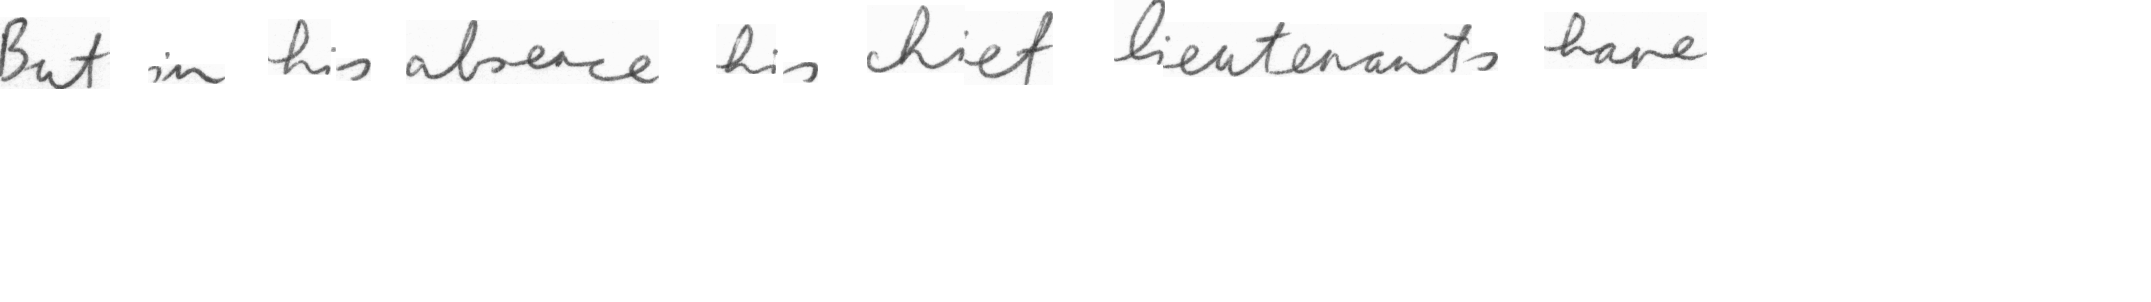 But in his absence his chief lieutenants have